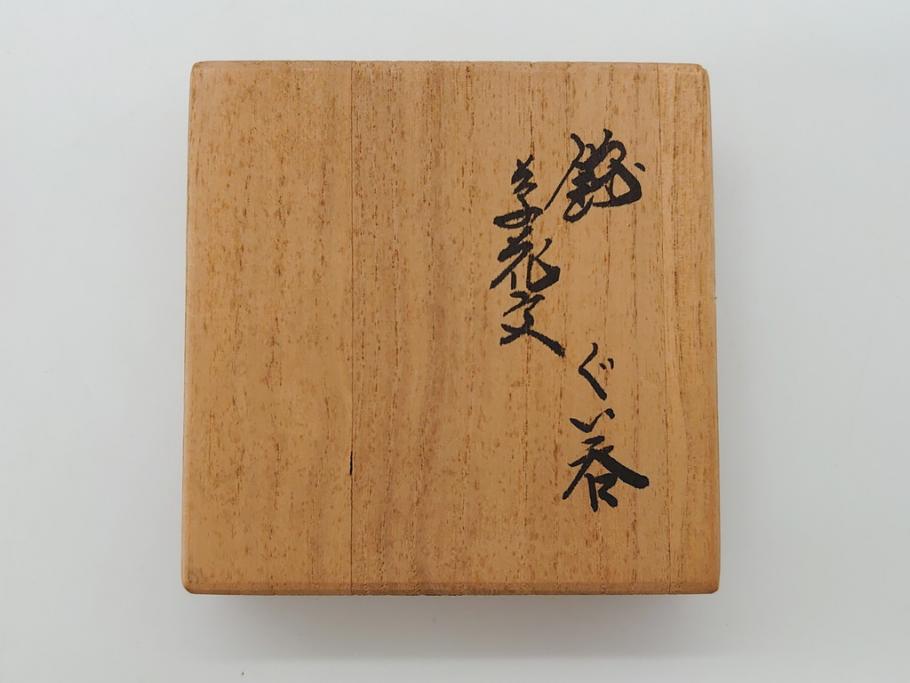 草花文
ぐい呑